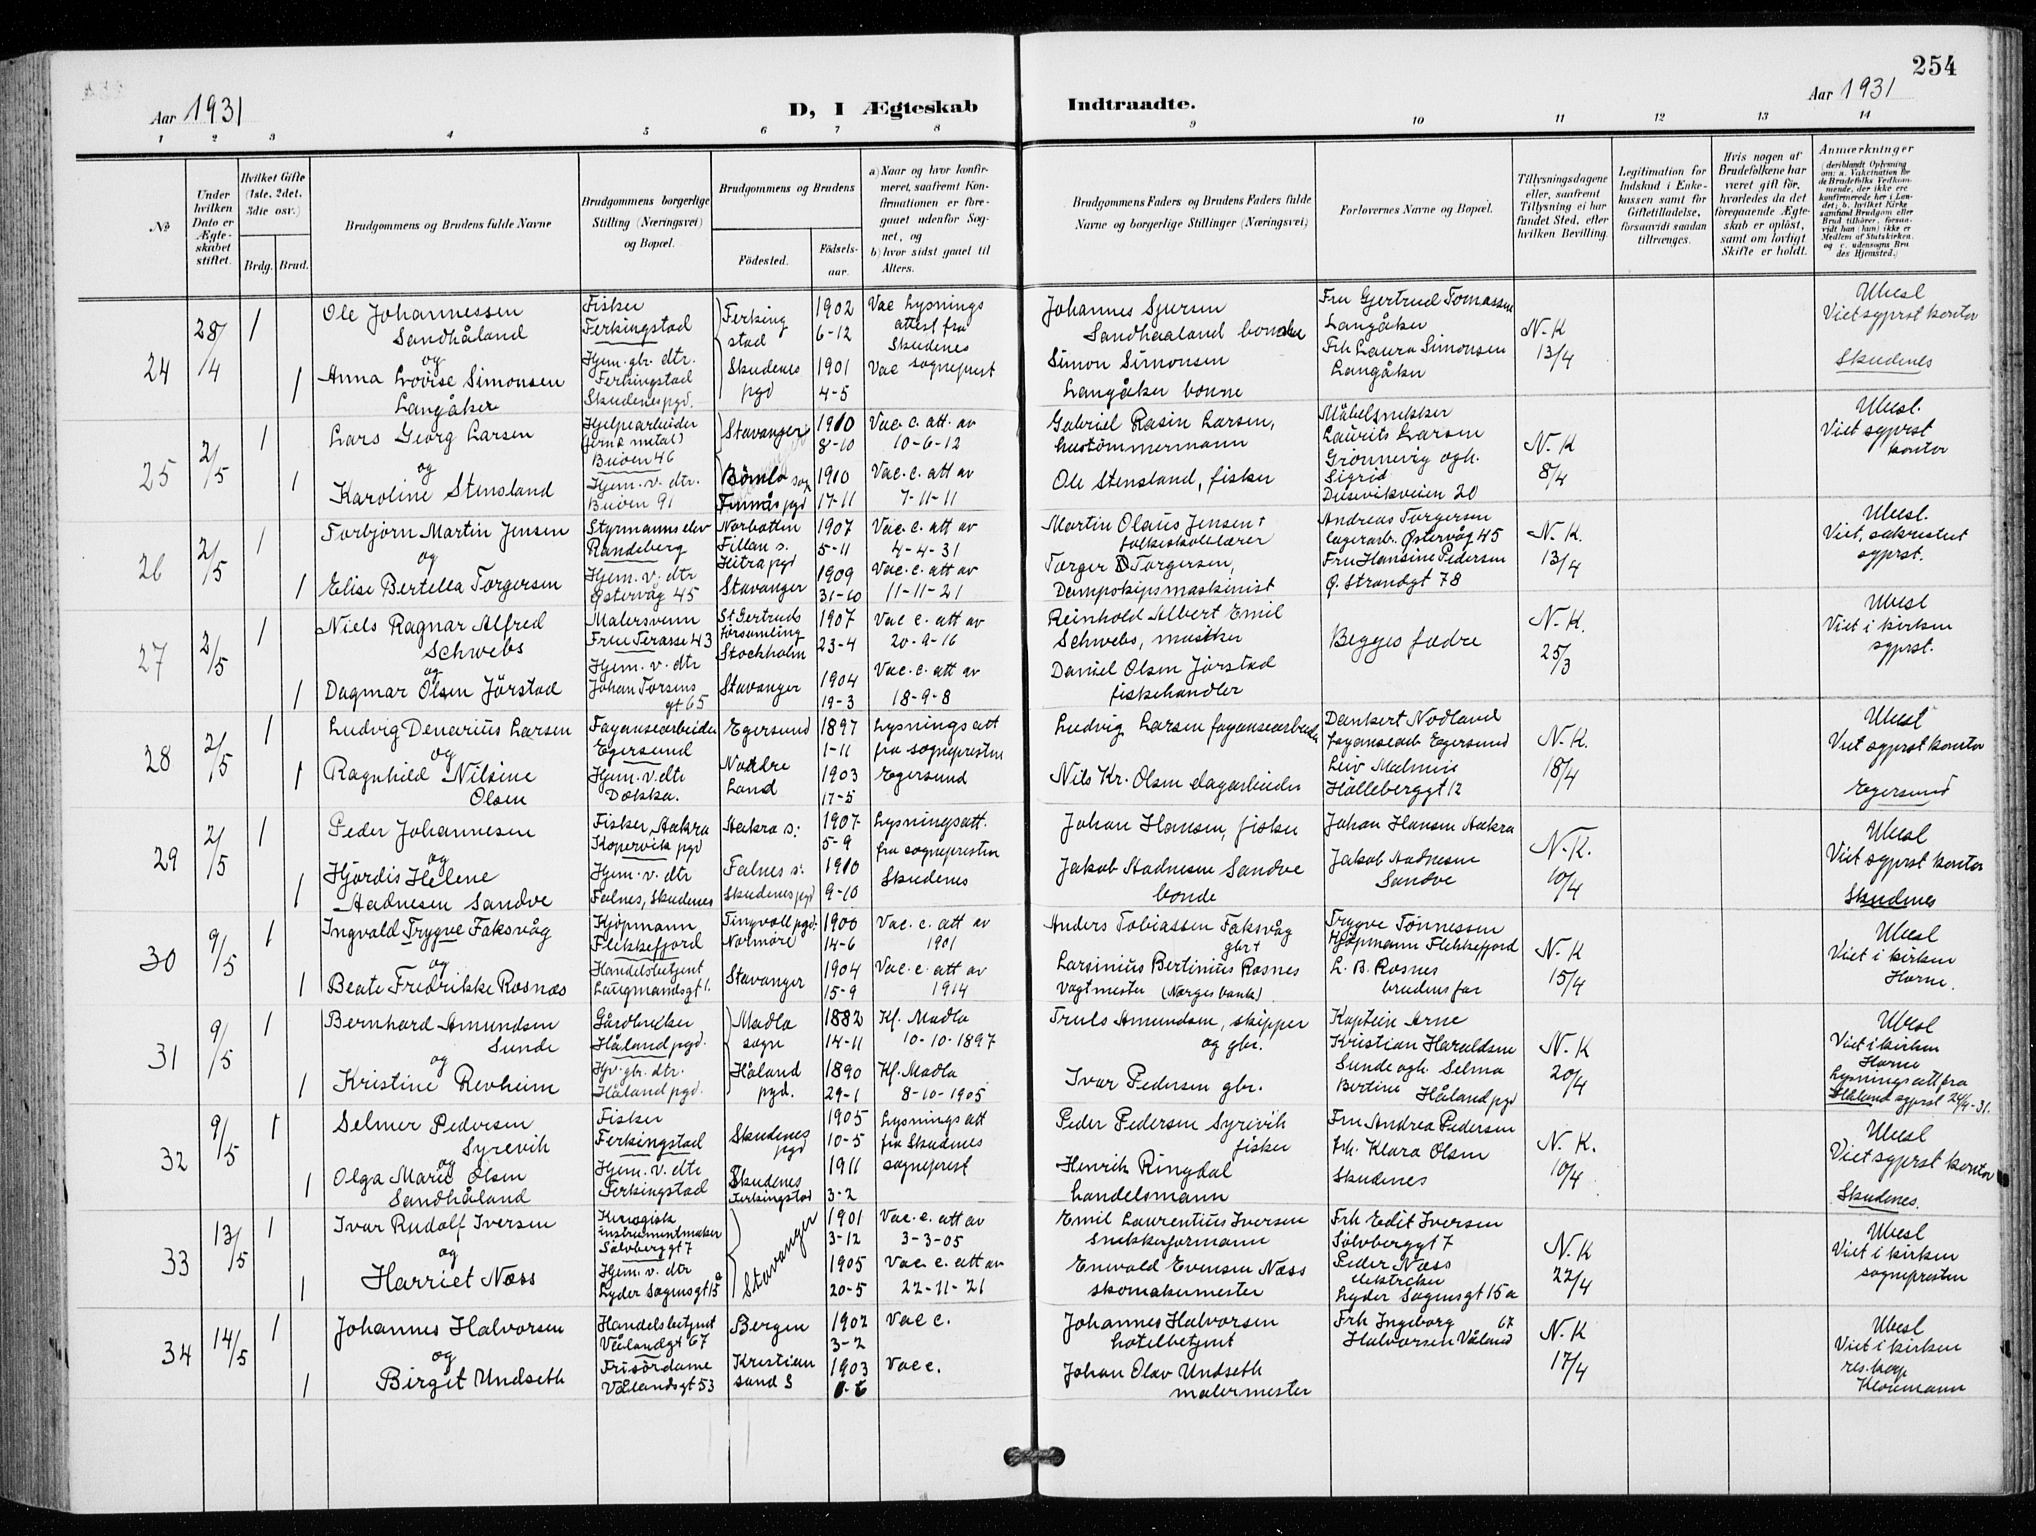 254
Aar 1931
D, I Ægteskab
Indtraadte.
Aar 1931
1 2 3 4 5 6 7 8 9 10 11 12 13 14
No
Under hvilken Dato er Ægteskabet stiftet.
Hvilket Gifte (1ste, 2det, 3die osv.)
Brdg. Brud.
Brudgommens og Brudens fulde Navne
Brudgommens borgerlige Stilling (Næringsvei) og Bopæl.
Brudgommens og Brudens
Födested.
Födselsaar.
a) Naar og hvor konfirmeret, saafremt Konfirmationen er foregaaet udenfor Sognet, og
b) hvor sidst gaaet til Alters.
Brudgommens Faders og Brudens Faders fulde Navne og borgerlige Stillinger (Næringsvei)
Forlovernes Navne og Bopæl.
Tillysningsdagene eller, saafremt Tillysning ei har fundet Sted, efter hvilken Bevilling.
Legitimation for Indskud i Enkekassen samt for Giftetilladelse, forsaavidt saadan tiltrænges.
Hvis nogen af Brudefolkene har været gift för, hvorledes da det foregaaende Ægteskab er oplöst, samt om lovligt Skifte er holdt.
Anmærkninger
(deriblandt Oplysning om: a. Vakcination for de Brudefolks Vedkommende, der ikke ere konfirmerede her i Landet; b. hvilket Kirkesamfund Brudgom eller Brud tilhörer, forsaavidt han (hun) ikke er Medlem af Statskirken, og c. udensogns Brudes Hjemsted.)
24
28/4
1
Ole Johannessen
Sandhåland
og
1
Anna Lovise Simonsen
Langåker
Fisker
Ferkingstad
Hjem. gbr. dtr.
Ferkingstad
Skudenes pgd.
Ferking
stad
Skudenes
pgd
1902
6-12
1901
4-5
Vac Lysnings
attest fra
Skudenes
Vac sogneprest
Johannes
Sandhaaland bonde
Simon Simonsen
Langåker bonne
Fru Gjertrud Tomassen
Langåker
Frk Laura Simonsen
Langåker
N. K
13/4
Ubesl
Viet sgprst kontor
Skudenes
25
2/5
1
Lars Georg Larsen
og
1
Karoline Stensland
Hjelpearbeider
(jern & metal)
Buöen 46
Hjem. v. dtr.
Buöen 91
Stavanger
Bömlo sogn
Finnås pgd
1910
8-10
1910
17-11
Vac. c. att. av
10-6-12
Vac. c. att av
7-11-11
Gabriel Rasin Larsen,
hustömmermann
Ole Stensland, fisker
Möbelsnekker
Laurits Larsen
Grönnevig ogh.
Sigrid
Dusevikveien 20
N. K
8/4
Ubesl.
Viet sgprst
kontor
26
2/5
1
Torbjörn Martin Jensen
og
1
Elise Bertella Torgersen
Styrmanns elev
Randeberg
Hjem. v. dtr
Østervåg 45
Norbotten
Fillan s.
Hitra pgd
Stavanger
1907
5-11
1909
31-10
Vac. c. att av
4-4-31
Vac. c. att av
11-11-21
Martin Olaus Jensen +
folkeskolelærer
Torger D Torgersen,
Dampskipsmaskinist
Andreas Torgersen
lagerarb. Østervåg 45
Fru Hansine Pedersen
Ø. Strandgt 78
N. K.
13/4
Ubesl.
Viet, sakristiet
sgprst.
27
2/5
1
Niels Ragnar Alfred
Schwebs
og
1
Dagmar Olsen Jörstad
Malersvenn
Frue Terasse 43
Hjem. v. dtr
Johan Torsens
gt 65
St Gertruds
församling
Stockholm
Stavanger
1907
23-4
1904
19-3
Vac c. att av
20-9-16
Vac. c. att av
18-9-8
Reinhold Albert Emil
Schwebs, musiker
Daniel Olsen Jörstad
fiskehandler
Begges fædre
N. K.
25/3
Ubesl
Viet i kirken
sgprst.
28
2/5
1
Ludvig Denarius Larsen
og
1
Ragnhild Nilsine
Olsen
Fayansearbeider
Egersund
Hjem. v. dtr
Dokka.
Egersund
Nordre
Land
1897
1-11
1903
17-5
Lysnings att
fra sognepresten
Egersund
Ludvig Larsen fayansearbeider
Nils Kr. Olsen dagarbeider
Dankert Nodland
fayansearb Egersund
Leiv Malmin
Hölleberggt 12
N. K.
18/4
Ubesl
Viet sgprst kontor
Egersund
29
2/5
1
Peder Johannesen
og
1
Hjördis Helene
Aadnesen Sandve
Fisker, Aakra
Kopervik pgd
Hjem. v. dtr
Falnes, Skudenes
Aakra s:
Falnes s:
Skudenes pgd
1907
5-9
1910
9-10
Lysningsatt.
fra sognepresten
Skudenes
Johan Hansen, fisker
Jakob Aadnesen Sandve
bonde
Johan Hansen Aakra
Jakob Aadnesen
Sandve
N. K.
10/4
Ubesl
Viet sgprst kontor
Skudenes
30
9/5
1
Ingvald Trygve Faksvåg
og
1
Beate Fredrikke Rosnæs
Kjöpmann
Flekkefjord
Handelsbetjent
Laugmandsgt 1.
Tingvoll pgd.
Normöre
Stavanger
1900
14-6
1904
15-9
Vac. c. att av
1901
Vac. c. att av
1914
Anders Tobiassen Faksvåg
gbr +
Larsinius Bertinius Rosnes
vagtmester (Norges bank)
Trygve Tönnessen
Kjöpmann Flekkefjord
L. B. Rosnes
brudens far
N. K
15/4
Ubesl
Viet i kirken
Horne.
31
9/5
1
Bernhard Amundsen
Sunde
og
1
Kristine Revheim
Gårdbruker
Håland pgd.
Hjv. gbr. dtr.
Håland pgd.
Madla
sogn
Håland
pgd.
1882
14-11
1890
29-1
Kf. Madla
10-10-1897
Kf. Madla
8-10-1905
Truls Amundsen, skipper
og gbr.
Ivar Pedersen gbr.
Kaptein Arne
Kristian Haraldsen
Sunde ogh. Selma
Bertine Håland pgd
N. K
20/4
Ubesl
Viet i kirken
Horne
Lysnings att fra
Håland sgprst 24/4-31.
32
9/5
1
Selmer Pedersen
Syrevik
og
1
Olga Marie Olsen
Sandhåland
Fisker
Ferkingstad
Hjem. v. dtr
Ferkingstad
Skudenes
pgd
Skudenes
Ferkingstad
1905
10-5
1911
3-2
Lysnings att
fra Skudenes
sogneprest
Peder Pedersen Syrevik
fisker
Henrik Ringdal
handelsmann
Fru Andrea Pedersen
frk. Klara Olsen
Skudenes
N. K.
10/4
Ubesl
Viet sgprst kontor
Skudenes.
33
13/5
1
Ivar Rudolf Iversen
og
1
Harriet Næss
Kirurgisk
instrumentmaker
Sölvberggt 7
Hjem. v. dtr
Lyder Sagensgt 15a
Stavanger
1901
3-12
1905
20-5
Vac. c. att av
3-3-05
Vac. c. att av
22-11-21
Emil Laurentius Iversen
Snekkerformann
Enevald Evensen Næss
skomakermester
Frk Edit Iversen
Sölvberggt 7
Peder Næss
elektriker
Lyder Sagensgt 15a
N. K
22/4
Ubesl
Viet i kirken
sognepresten
34
14/5
1
Johannes Halvorsen
og
1
Birgit Undseth
Handelsbetjent
Vålandgt 67
Frisördame
Vålandsgt 53
Bergen
Kristian
sand S
1902
3-2
1903
Vac c.
Vac c.
Johannes Halvorsen
hotelbetjent
Johan Olav Undseth
malermester
Frk Ingeborg 67
Halvorsen Våland
N. K
17/4
Ubesl
Viet i kirken
res. kap